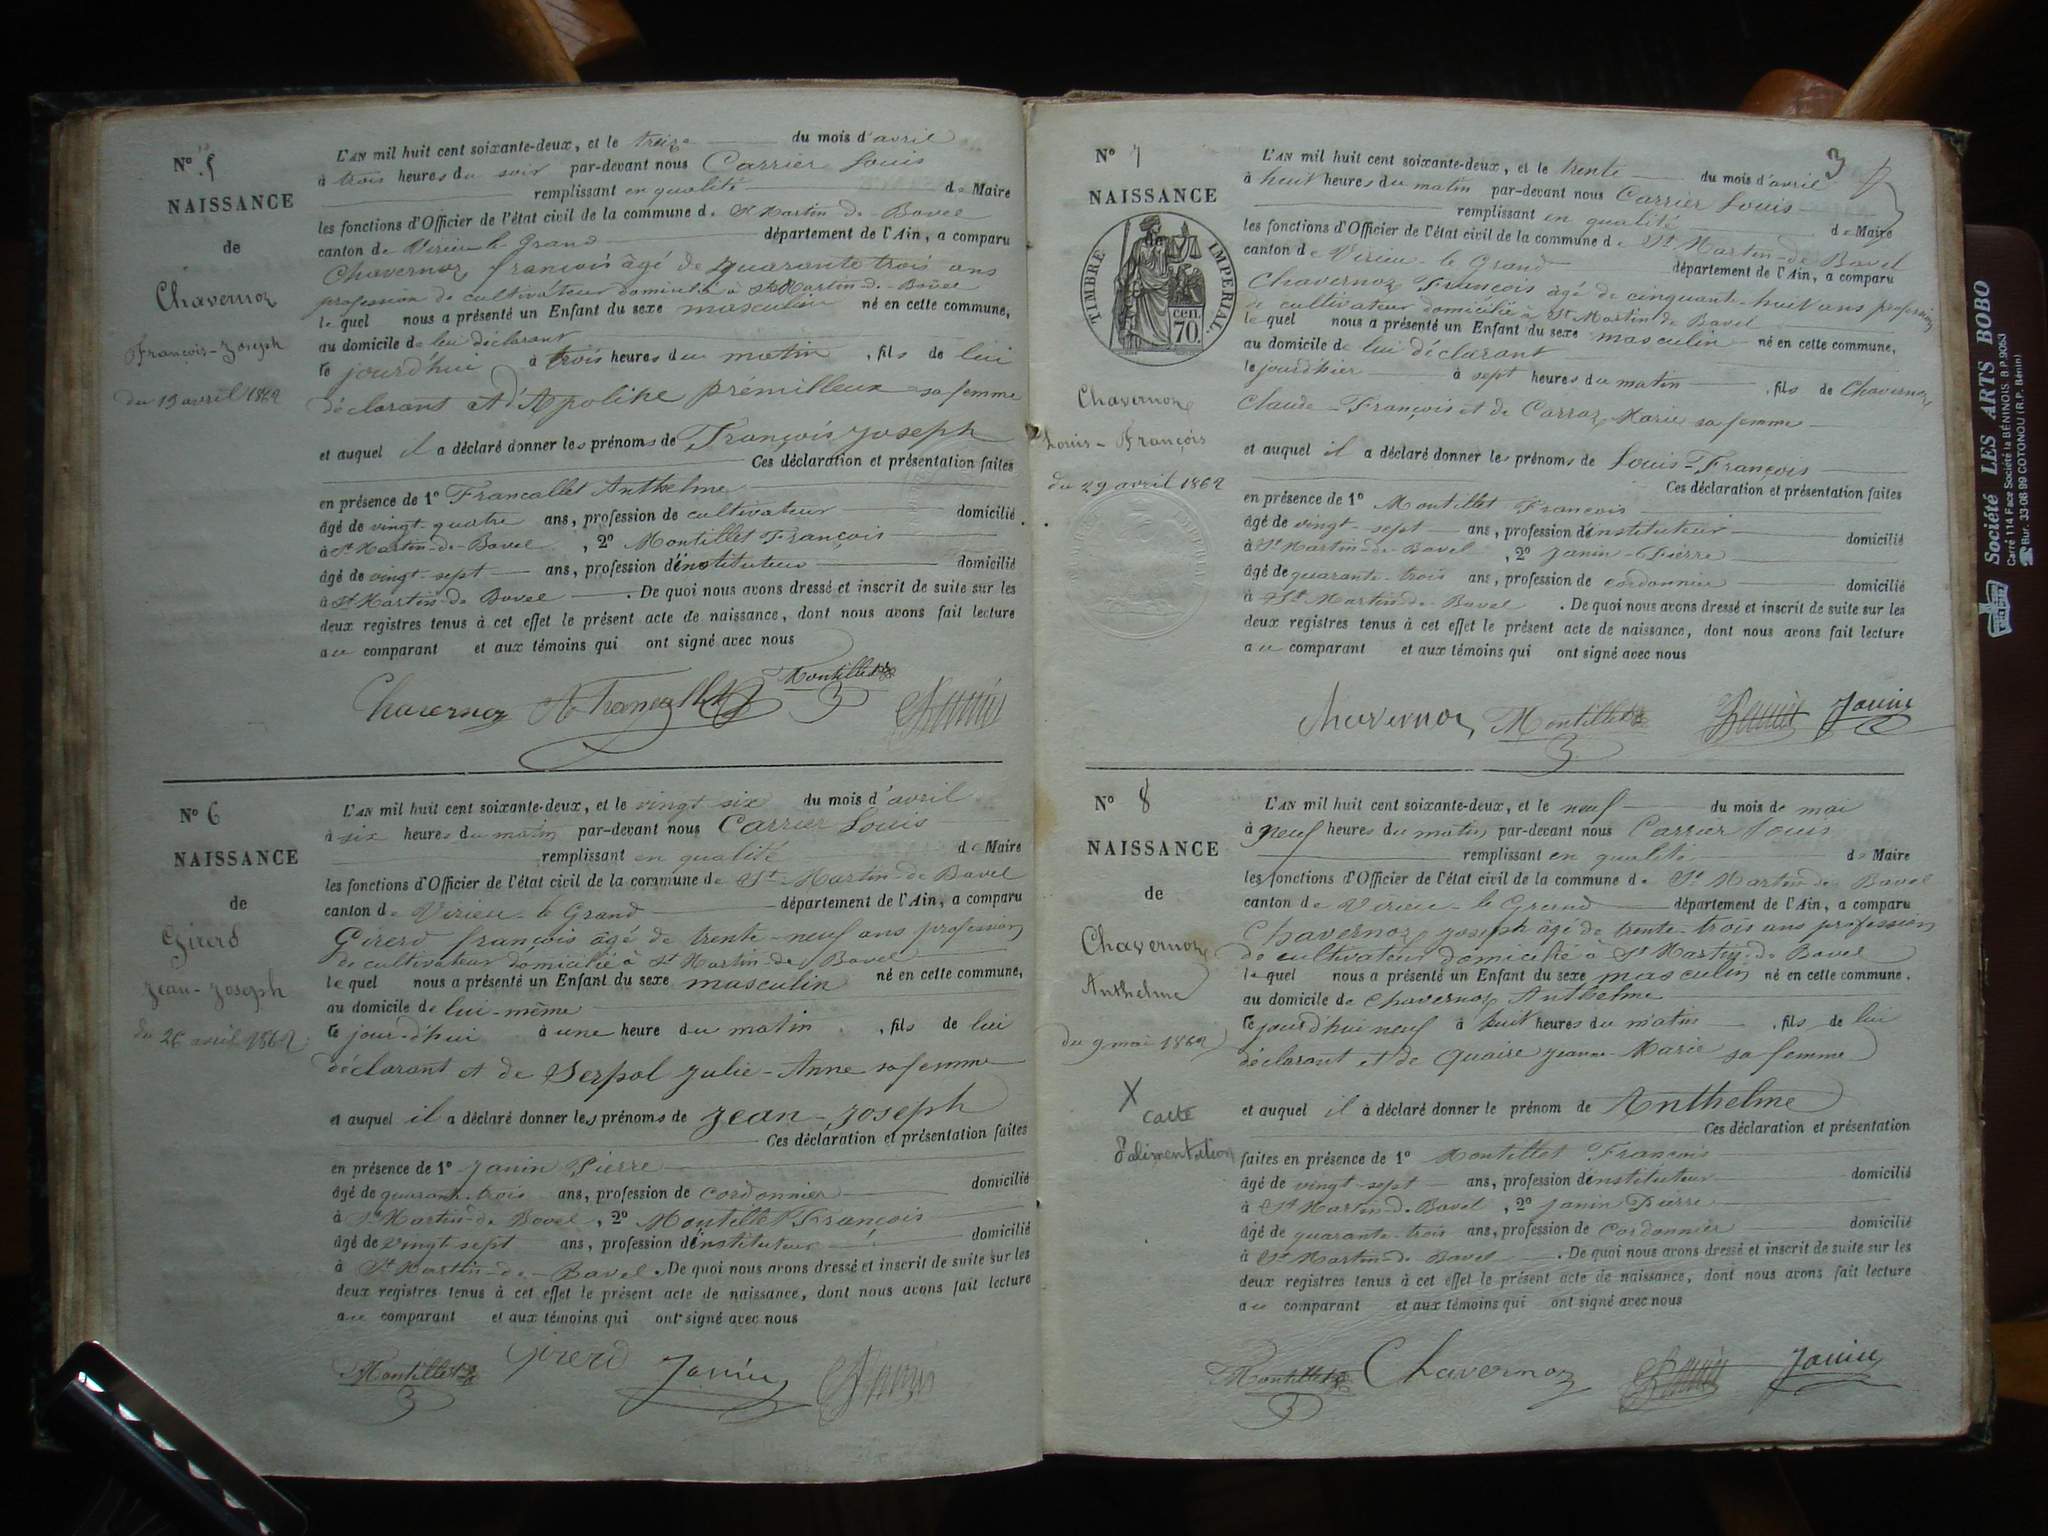 N° 5
NAISSANCE
de
Chavernoz
François-Joseph
du 13 avril 1862
L'AN mil huit cent soixante-deux, et le treize du mois d'avril
à trois heures du soir par-devant nous Carrier Louis
remplissant en qualité de Maire
les fonctions d'Officier de l'état civil de la commune de St Martin-de-Bavel
canton de Virieu le Grand département de l'Ain, a comparu
Chavernoz françois âgé de quarante trois ans
profession de cultivateur domicilié à St Martin-de-Bavel
lequel nous a présenté un Enfant du sexe masculin né en cette commune,
au domicile de lui déclarant
le jourd'hui à trois heures du matin, fils de lui
déclarant et d'Apoline prémilleux sa femme
et auquel il a déclaré donner les prénoms de François Joseph
Ces déclaration et présentation faites
en présence de 1° Francallet Anthelme
âgé de vingt-quatre ans, profession de cultivateur domicilié
à St Martin-de-Bavel, 2° Montillet François
âgé de vingt-sept ans, profession d'instituteur domicilié
à St Martin-de Bavel. De quoi nous avons dressé et inscrit de suite sur les
deux registres tenus à cet effet le présent acte de naissance, dont nous avons fait lecture
au comparant et aux témoins qui ont signé avec nous
Chavernoz A Francallet Montillet
N° 6
NAISSANCE
de
Girerd
Jean-Joseph
du 26 avril 1862
L'AN mil huit cent soixante-deux, et le vingt six du mois d'avril
à six heures du matin par-devant nous Carrier Louis
remplissant en qualité de Maire
les fonctions d'Officier de l'état civil de la commune de St-Martin-de Bavel
canton de Virieu-le Grand département de l'Ain, a comparu
Girerd françois âgé de trente-neuf ans profession
de cultivateur domicilié à St Martin-de Bavel
lequel nous a présenté un Enfant du sexe masculin né en cette commune,
au domicile de lui-même
le jour-d'hui à une heure du matin, fils de lui
déclarant et de Serpol Julie-Anne sa femme
et auquel il a déclaré donner les prénoms de Jean-Joseph
Ces déclaration et présentation faites
en présence de 1° Janin Pierre
âgé de quarante-trois ans, profession de cordonnier domicilié
à St Martin-de Bavel, 2° Montillet François
âgé de vingt-sept ans, profession d'instituteur domicilié
à St Martin-de-Bavel. De quoi nous avons dressé et inscrit de suite sur les
deux registres tenus à cet effet le présent acte de naissance, dont nous avons fait lecture
au comparant et aux témoins qui ont signé avec nous
Montillet Girerd Janin
3
N° 7
NAISSANCE
TIMBRE IMPÉRIAL
70 cen.
Chavernoz
Louis-François
du 29 avril 1862
L'AN mil huit cent soixante-deux, et le trente du mois d'avril
à huit heures du matin par-devant nous Carrier Louis
remplissant en qualité de Maire
les fonctions d'Officier de l'état civil de la commune de St Martin-de Bavel
canton de Virieu-le Grand département de l'Ain, a comparu
Chavernoz François âgé de cinquante-huit ans profession
de cultivateur domicilié à St Martin de Bavel
lequel nous a présenté un Enfant du sexe masculin né en cette commune,
au domicile de lui déclarant
le jourd'hier à sept heures du matin, fils de Chavernoz
Claude-François et de Carraz Marie sa femme
et auquel il a déclaré donner les prénoms de Louis-François
Ces déclaration et présentation faites
en présence de 1° Montillet François
âgé de vingt-sept ans, profession d'instituteur domicilié
à St Martin-de-Bavel, 2° Janin-Pierre
âgé de quarante-trois ans, profession de cordonnier domicilié
à St Martin-de-Bavel. De quoi nous avons dressé et inscrit de suite sur les
deux registres tenus à cet effet le présent acte de naissance, dont nous avons fait lecture
au comparant et aux témoins qui ont signé avec nous
Chavernoz Montillet Janin
N° 8
NAISSANCE
de
Chavernoz
Anthelme
du 9 mai 1862
X
carte
d'alimentation
L'AN mil huit cent soixante-deux, et le neuf du mois de mai
à neuf heures du matin par-devant nous Carrier Louis
remplissant en qualité de Maire
les fonctions d'Officier de l'état civil de la commune de St Martin-de Bavel
canton de Virieu-le Grand département de l'Ain, a comparu
Chavernoz Joseph âgé de trente-trois ans profession
de cultivateur domicilié à St Martin-de Bavel
lequel nous a présenté un Enfant du sexe masculin né en cette commune.
au domicile de Chavernoz Anthelme
le jourd'hui neuf à huit heures du matin, fils de lui
déclarant et de Quaire Jeanne-Marie sa femme
et auquel il a déclaré donner le prénom de Anthelme
Ces déclaration et présentation
faites en présence de 1° Montillet François
âgé de vingt-sept ans, profession d'instituteur domicilié
à St Martin-de Bavel, 2° Janin Pierre
âgé de quarante-trois ans, profession de cordonnier domicilié
à St Martin-de-Bavel. De quoi nous avons dressé et inscrit de suite sur les
deux registres tenus à cet effet le présent acte de naissance, dont nous avons fait lecture
au comparant et aux témoins qui ont signé avec nous
Montillet Chavernoz Janin
Société LES ARTS BOBO
Carré 114 Face Société la BÉNINOIS. B.P. 9053
Bur. 33-08-99 COTONOU (R.P. Bénin)